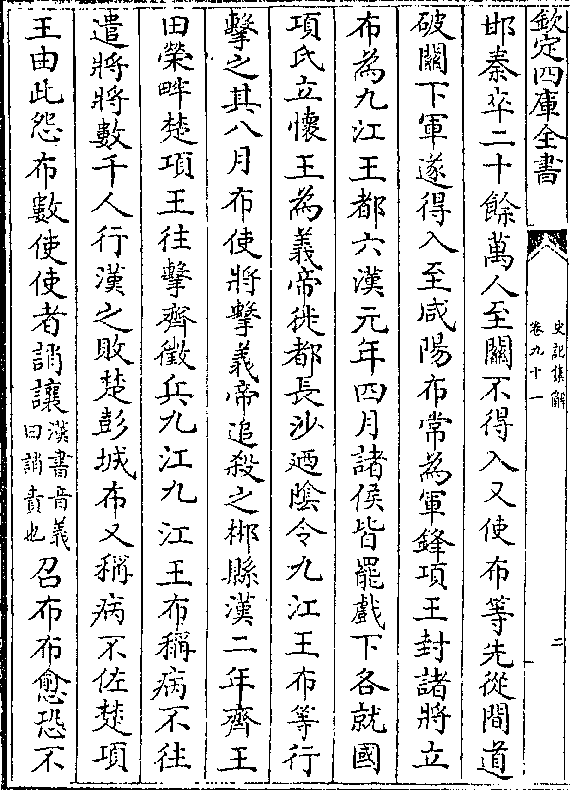 欽定四庫全書
史記集解
卷九十一
二
邯秦卒二十餘萬人至關不得入又使布等先從間道
破關下軍遂得入至咸陽布常為軍鋒項王封諸將立
布為九江王都六漢元年四月諸侯皆罷戲下各就國
項氏立懷王為義帝徙都長沙廼陰令九江王布等行
擊之其八月布使將擊義帝追殺之郴縣漢二年齊王
田榮畔楚項王往擊齊徵兵九江九江王布稱病不往
遣將將數千人行漢之敗楚彭城布又稱病不佐楚項
王由此怨布數使使者誚讓漢書音義曰誚責也召布布愈恐不